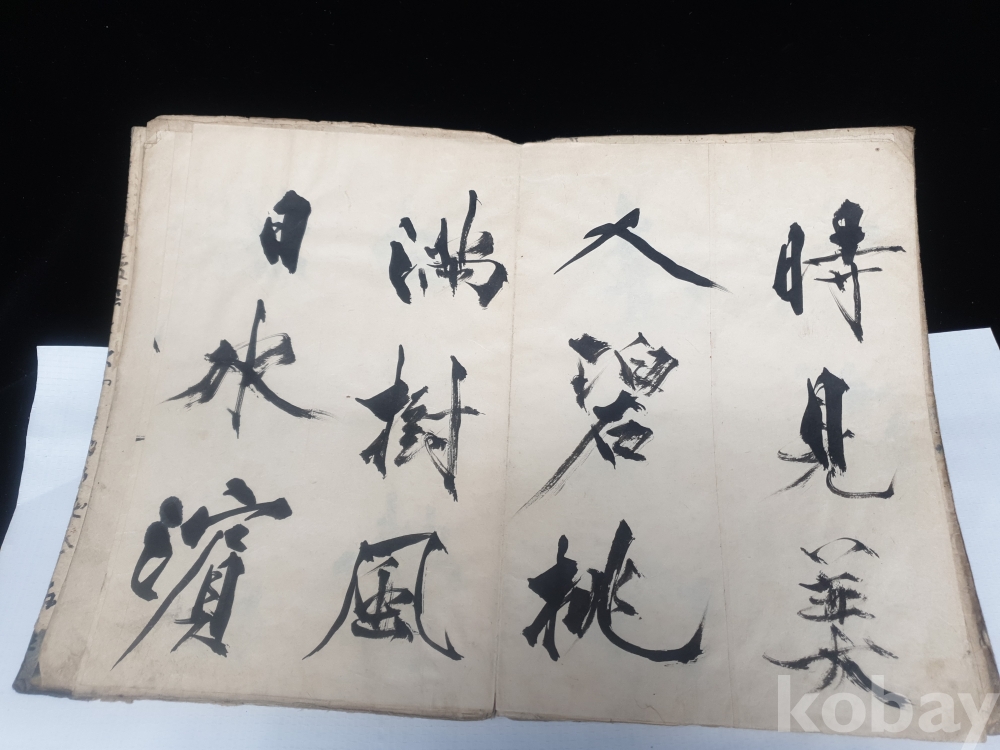 時見美
人碧桃
滿樹風
日水濱
kobay